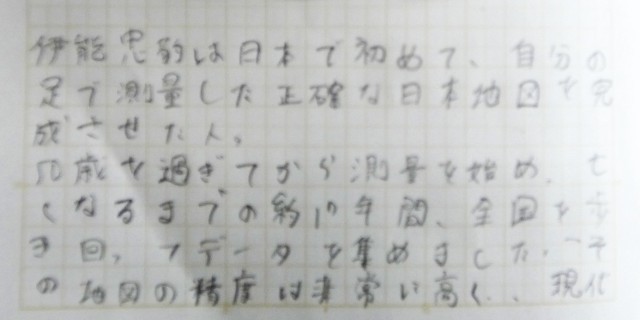 伊能忠敬は日本で初めて、自分の
足で測量した正確な日本地図を完
成させた人。
50歳を過ぎてから測量を始め、亡
くなるまでの約17年間、全国を歩
き回ってデータを集めました。そ
の地図の精度は非常に高く、現代